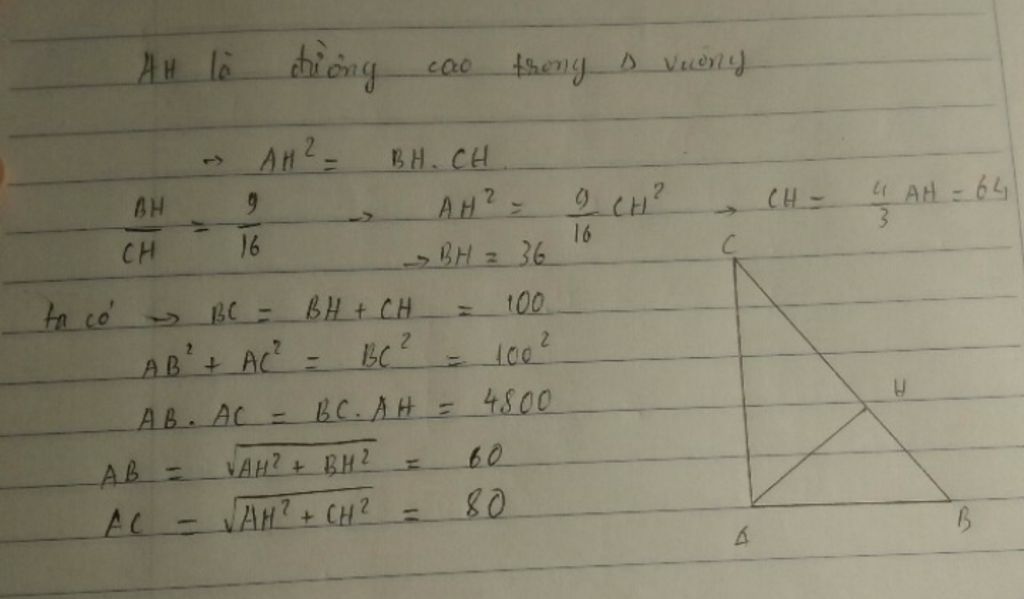 AH là đường cao trong Δ vuông
→ AH² = BH. CH
BH/CH = 9/16 → AH² = 9/16 CH² → CH = 4/3 AH = 64
→ BH = 36
ta có → BC = BH + CH = 100
AB² + AC² = BC² = 100²
AB. AC = BC. AH = 4800
AB = √(AH² + BH²) = 60
AC = √(AH² + CH²) = 80
C
H
A
B